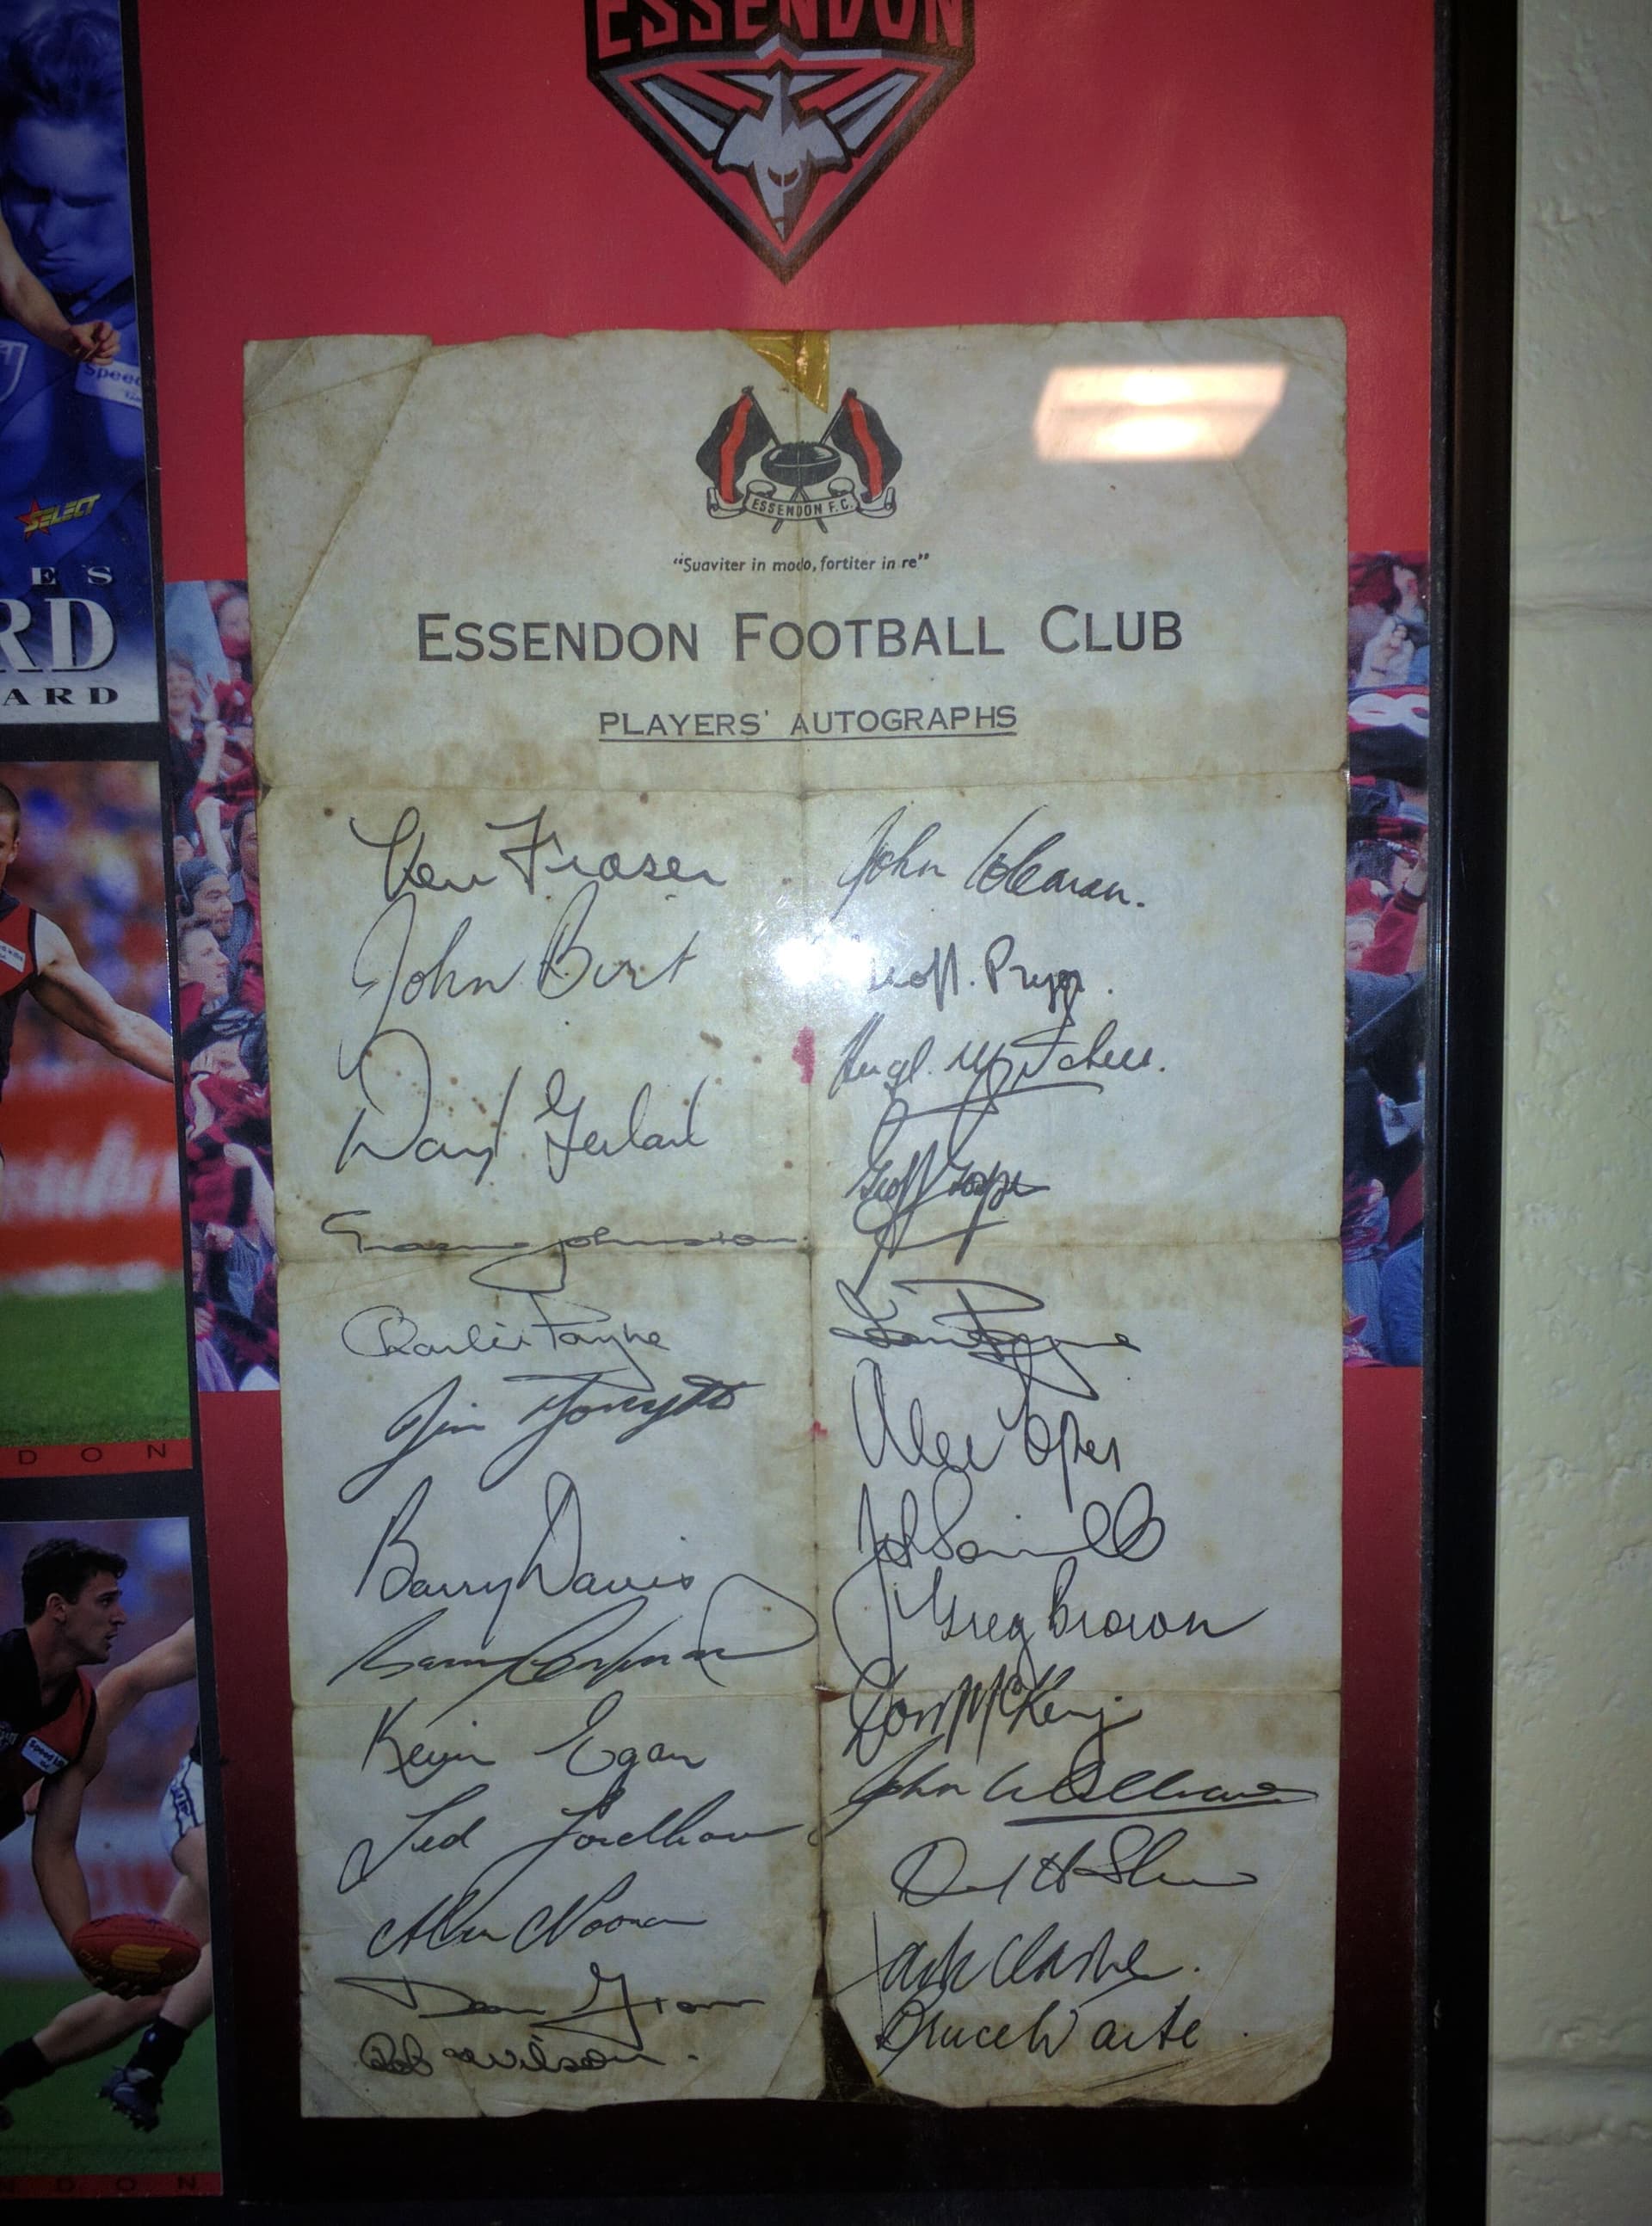 ESSENDON
SELECT
E S
RD
ARD
Speed
ESSENDON F.C.
"Suaviter in modo, fortiter in re"
ESSENDON FOOTBALL CLUB
PLAYERS' AUTOGRAPHS
Ken Fraser
John Coleman.
John Birt
Geoff. Pryor.
David Gerlach
Hugh Mitchell.
Geoff Gosper
Graeme Johnston.
Charlie Payne
Jim Forsyth
Alec Epis
Barry Davis
Greg Brown
Barry Capuano
Don McKenzie
Kevin Egan
John Williams
Ted Fordham
David H Shaw
Alan Noonan
Jack Clarke.
Bruce Waite
Bob Wilson.
D O N
D O N